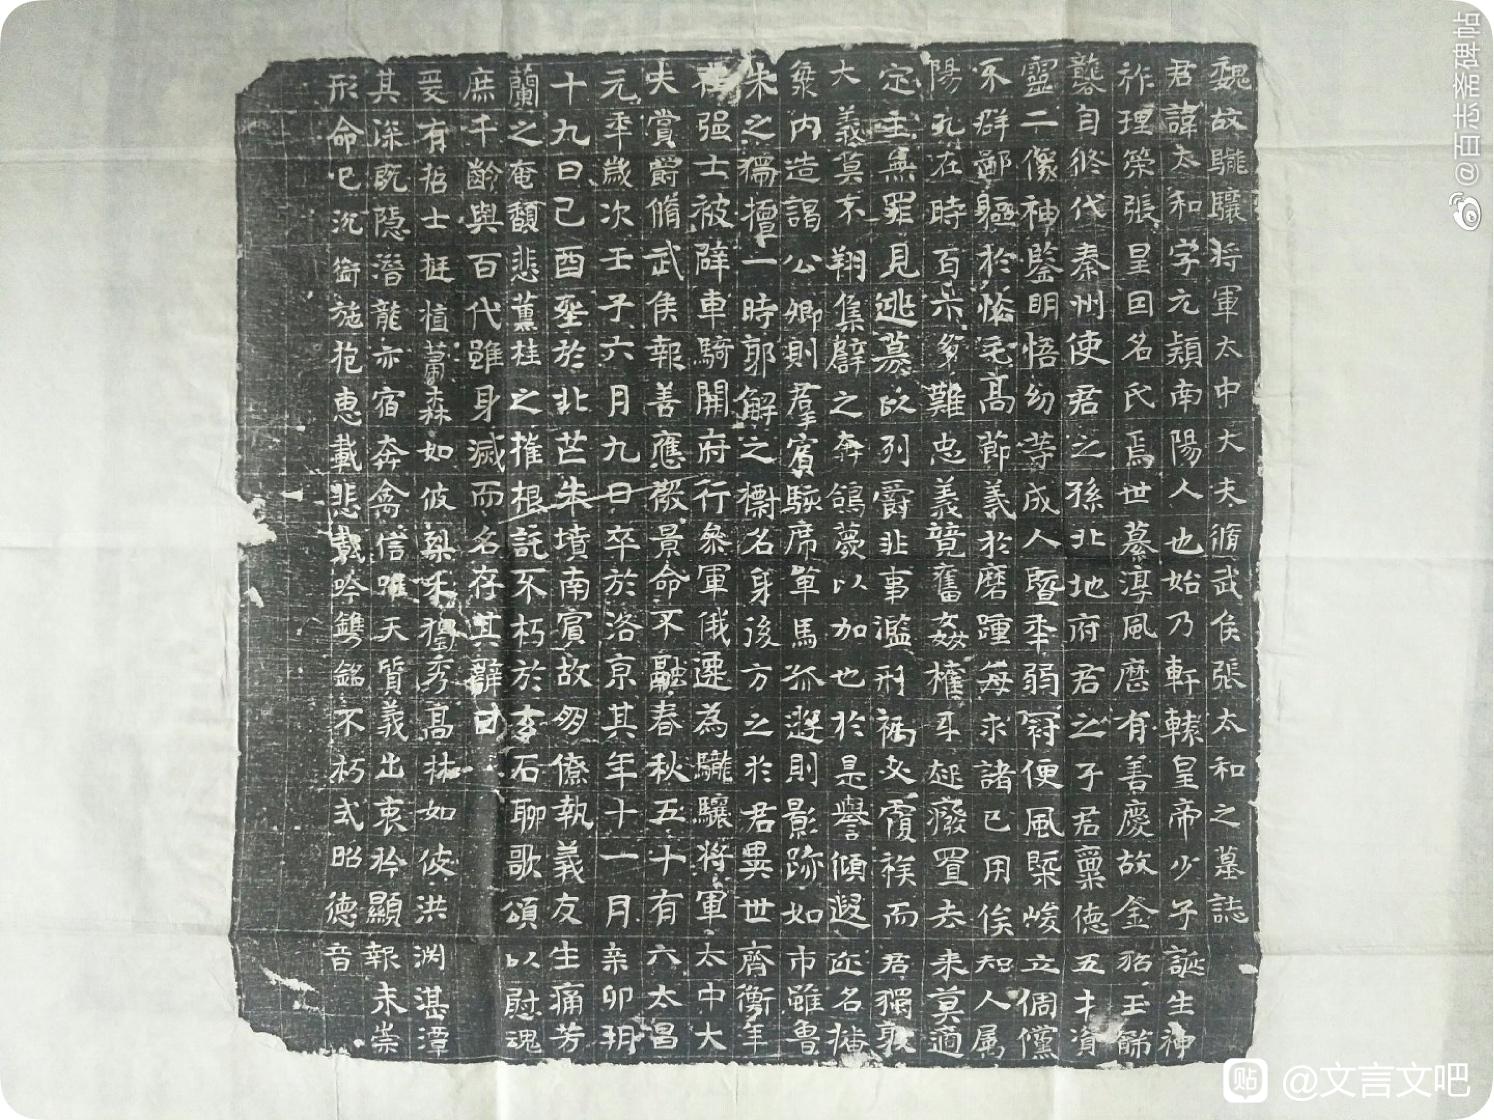 魏故驣驤将軍太中大夫脩武侯張太和之墓誌
君諱太和字元穎南陽人也始乃軒轅皇帝少子誕生神
祚理築張皇因名氏焉世纂淳風歷有善慶故金貂玉
襲自終代秦州使君之孫北地府君之子君稟德五才資
靈二像神鑒明悟幼等成人暨年弱冠便風槩峻立倜儻
不群鄙軀於惜毛高節義於磨踵每求諸已用俟知人屬
陽九在時百六多難忠義競奮姦權耳起癈置去来莫適
定主無罪見逃慕以列爵非事濫刑禍交覆族而君獨敦
大義莫不翔集辟之奔鵒蔓以加也於是譽傾遐迩名播
衆内造謁公卿則羣賓駭席單馬孤遊則影跡如市雖魯
朱之獨擅一時郭解之檦名身後方之於君異世齊衡年
强士被辟車騎開府行叅軍俄遷為驣驤将軍太中大
夫賞爵脩武侯報善應徵景命不融春秋五十有六太昌
元年歲次壬子六月九日卒於洛京其年十一月亲卯朔
十九日己酉堲於北芒朱墳南賓故夘僚執義友生痛芳
蘭之奄馥悲薰桂之摧根託不朽於玄石聊歌頌以慰魂
庶千齡與百代雖身滅而名存其辭曰
爰有哲士挺植蕭森如彼梨禾獨秀高林如彼洪渊湛潭
其深既隱潜龍亦宿奔禽信唯天質義出衷矜顯報未崇
形命已沉銜施抱恵載悲載吟鐫銘不朽式昭德音
@百志斋碑帖
貼 @文言文吧